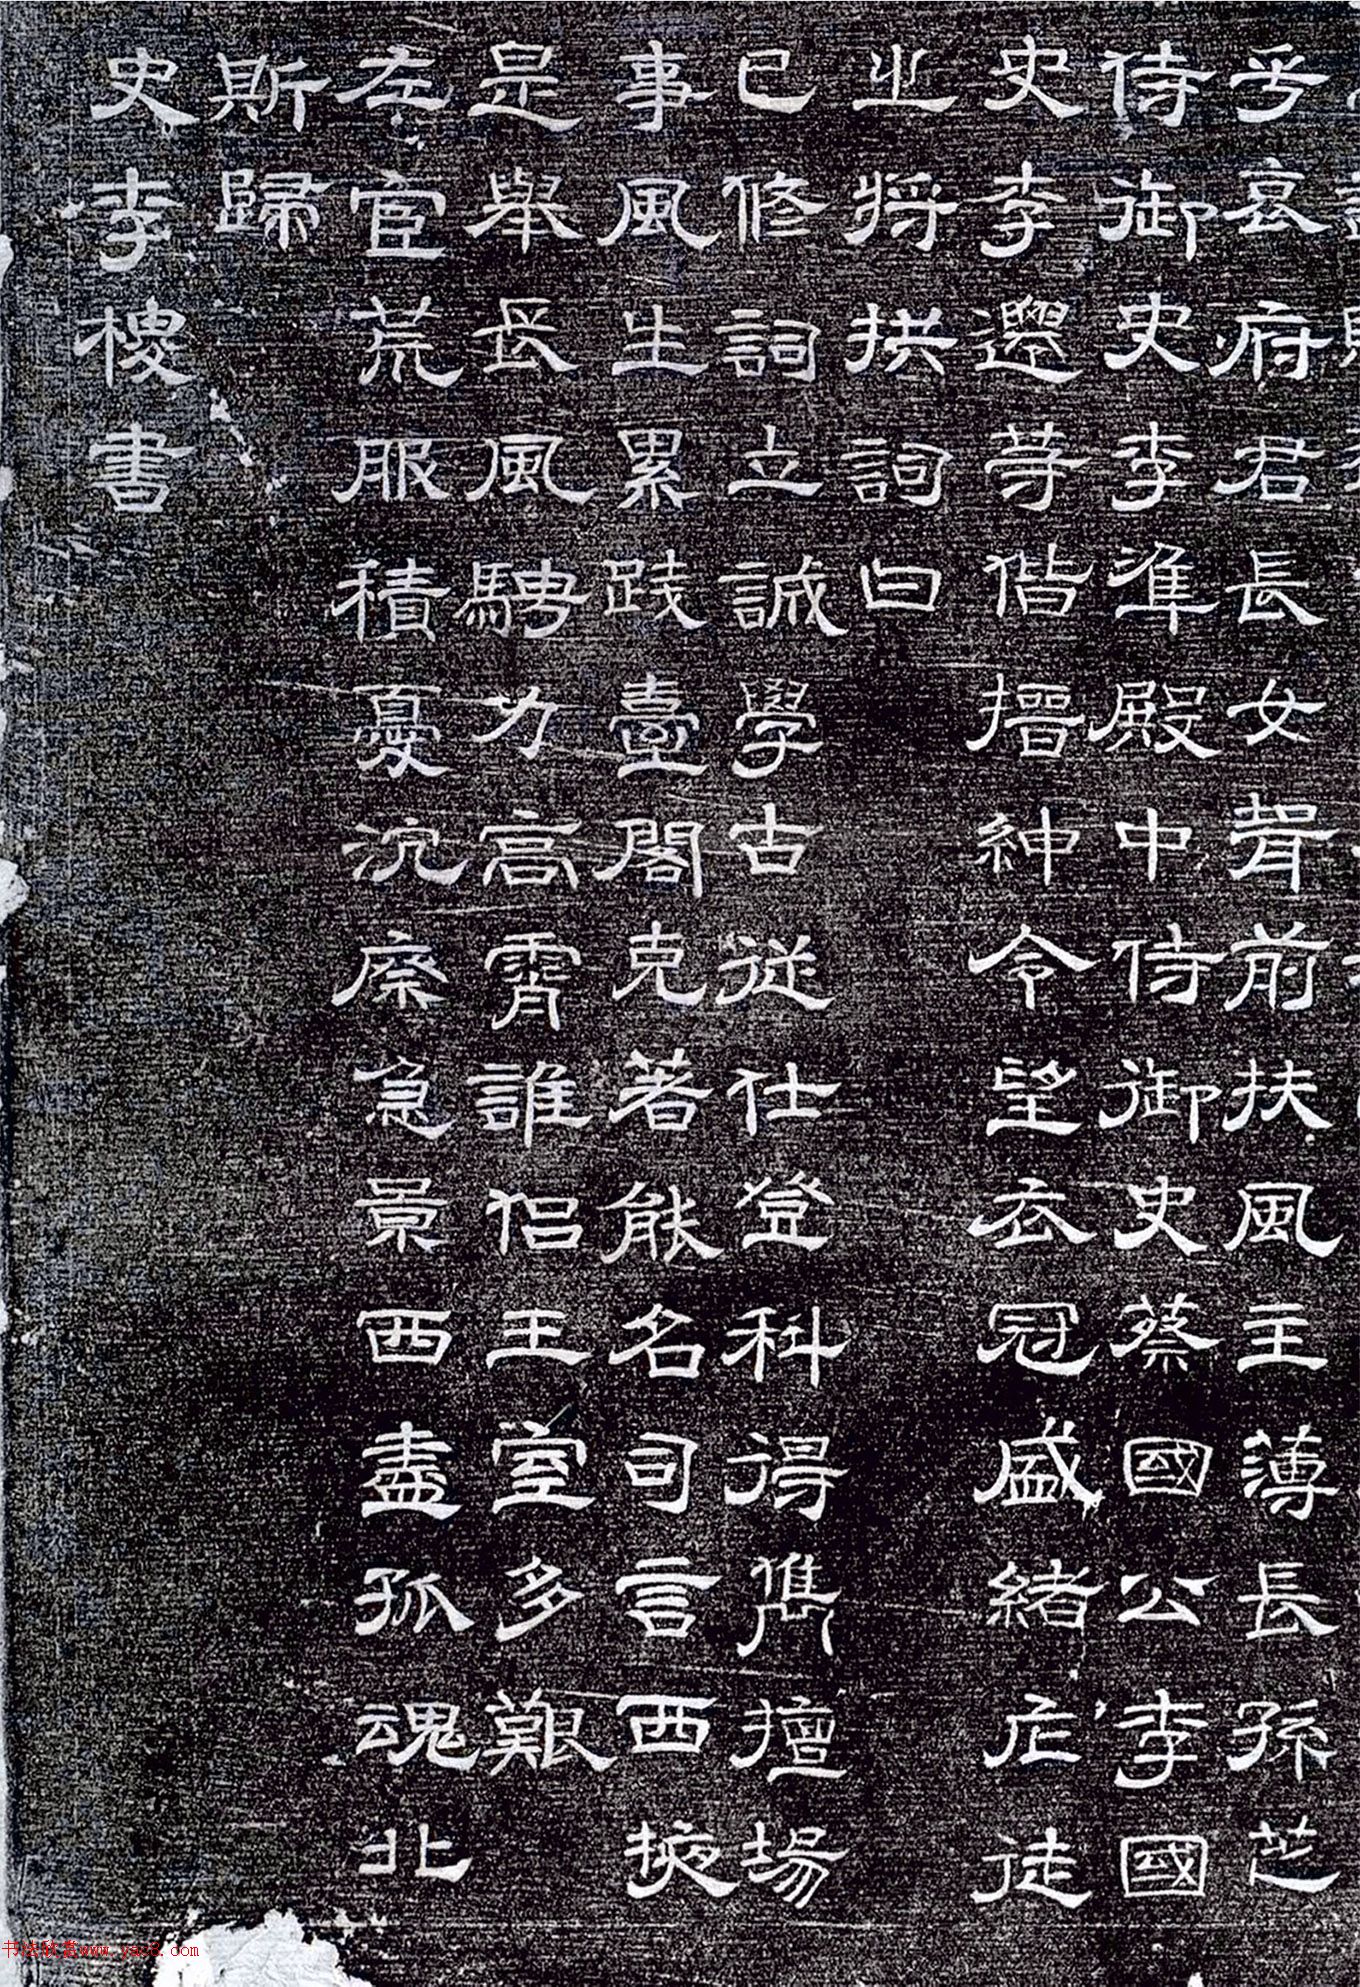 乎哀府君長女聟前扶風主薄長孫芝
侍御史李準殿中侍御史蔡國公李國
史李遷等偕搢紳令望衣冠盛緒尼徒
之將拱詞曰
已修詞立誠學古從仕登科得儁擅場
事風生累踐臺閣克著能名司言西掖
是舉長風騁力高霄誰侶王室多艱
左宦荒服積憂沉瘵急景西盡孤魂北
斯歸
史李㮣書
书法欣赏www.yac8.com